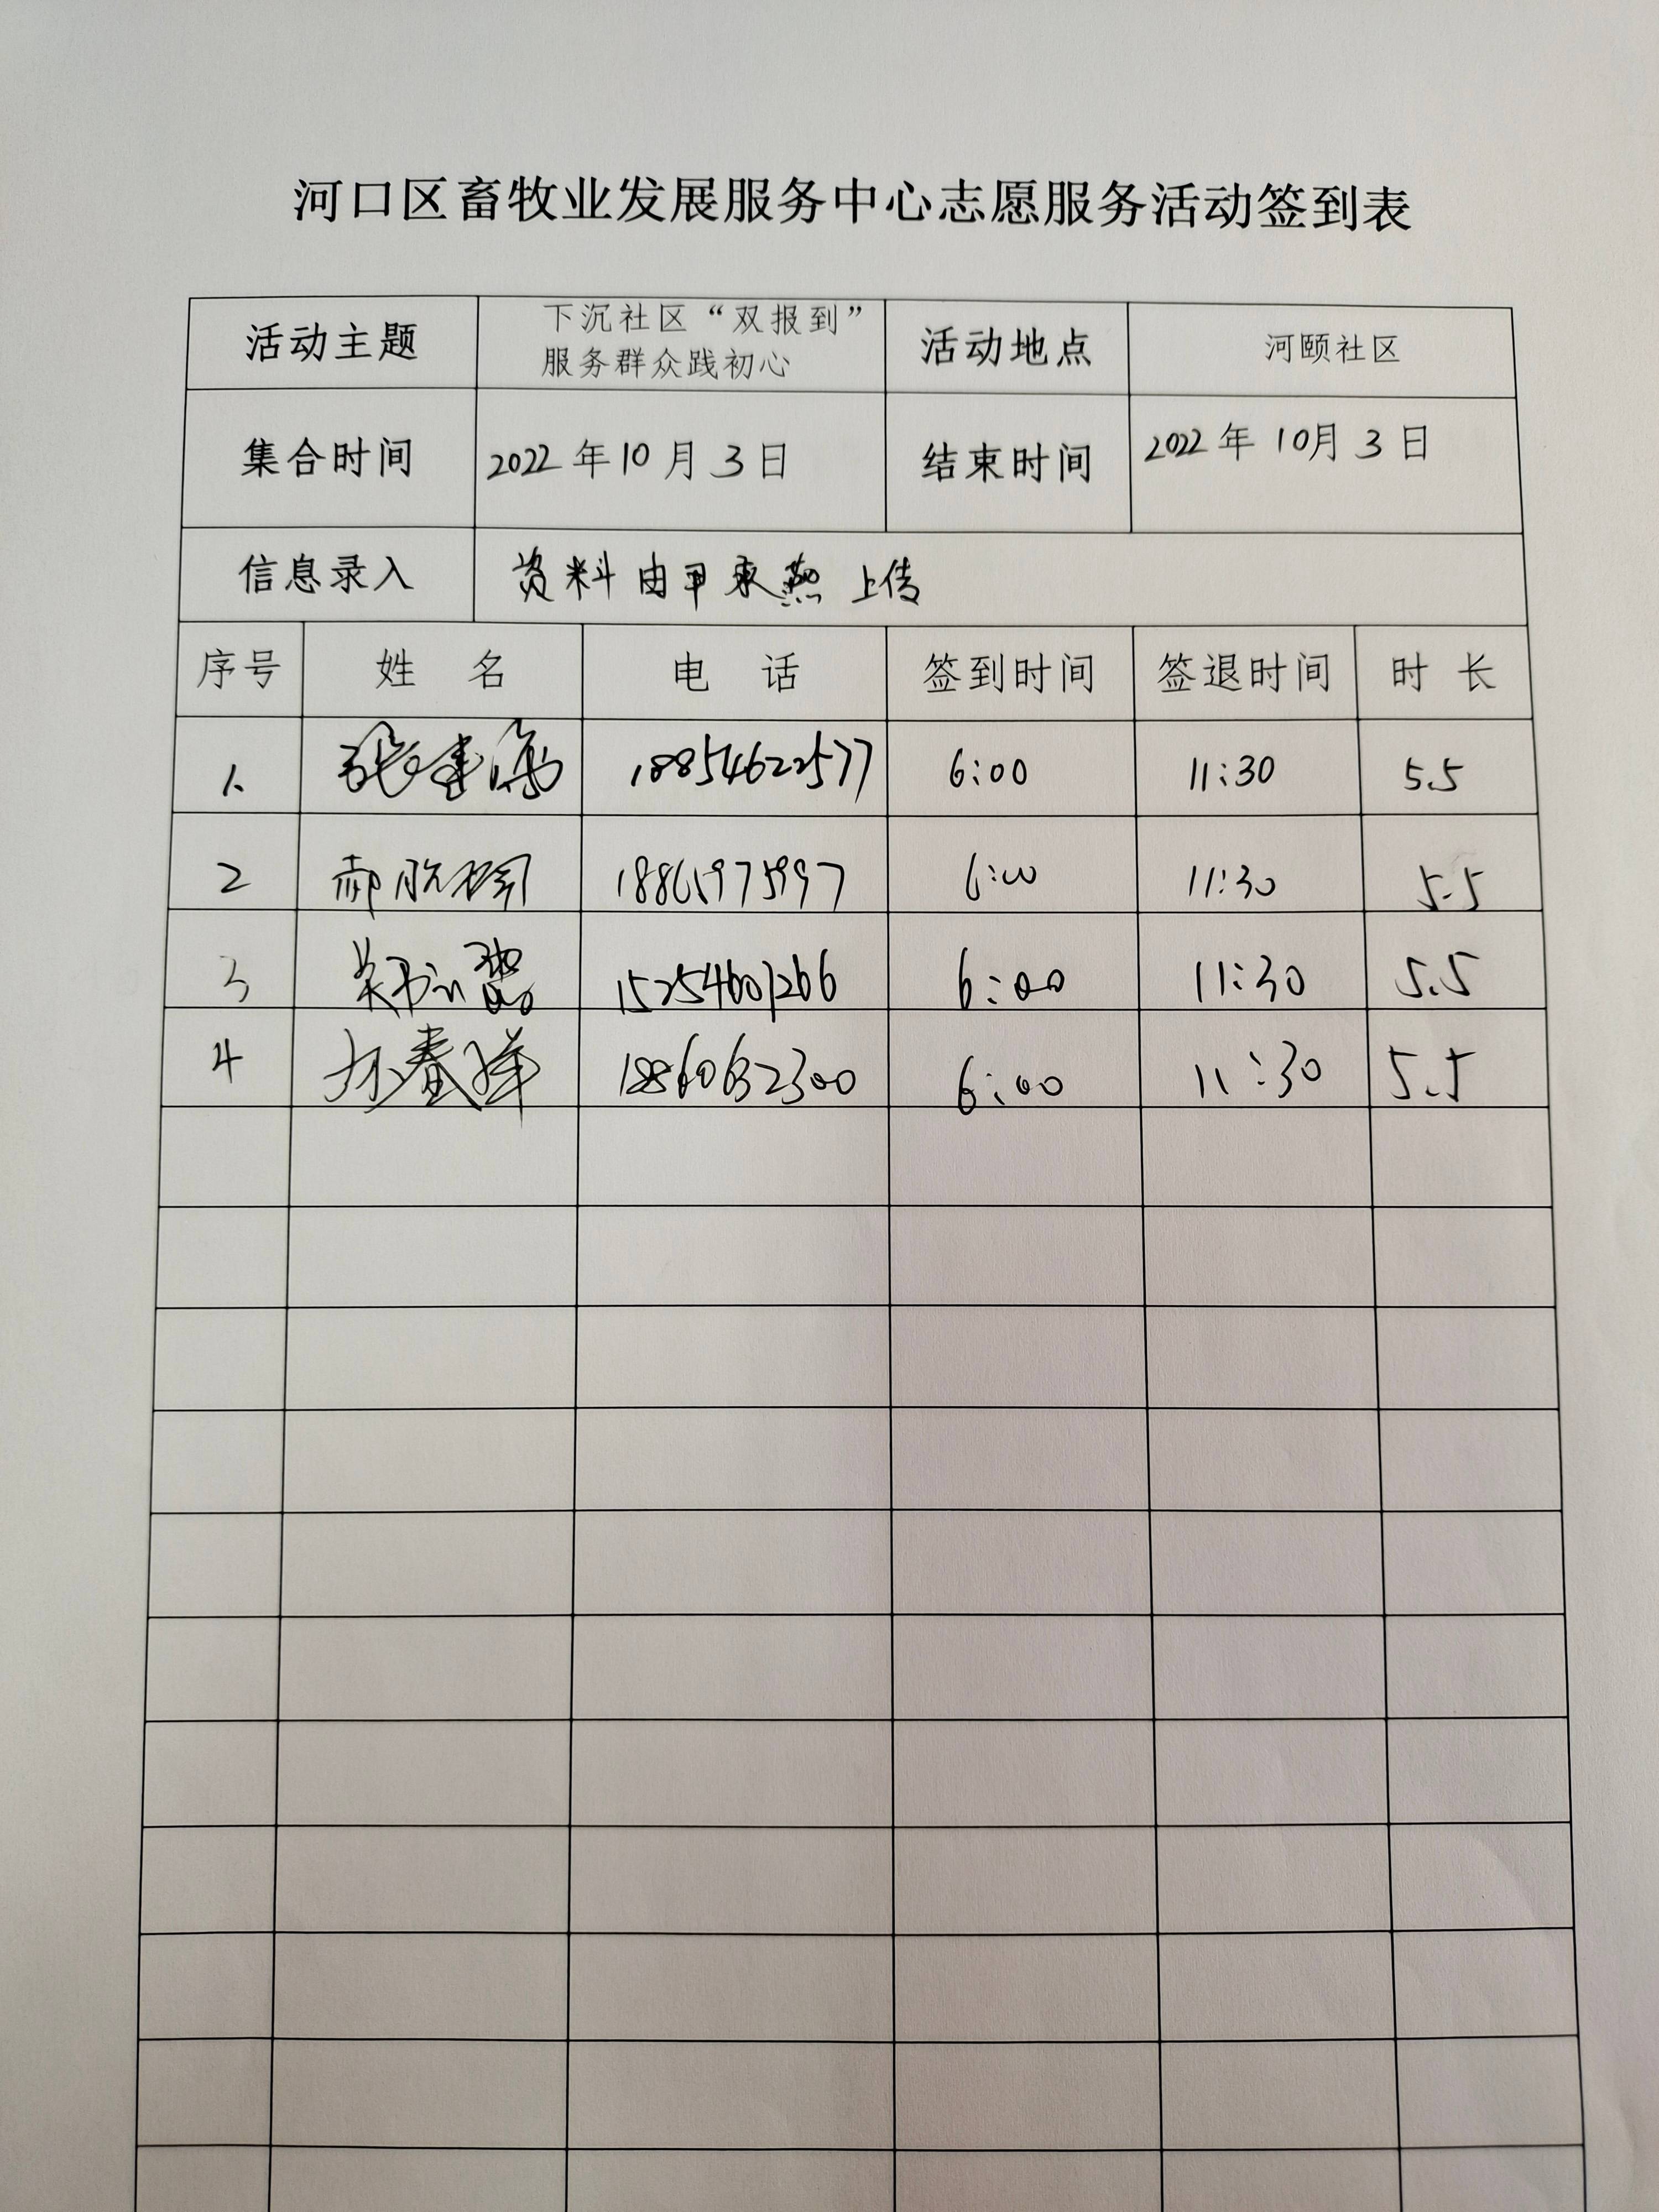 河口区畜牧业发展服务中心志愿服务活动签到表
活动主题 下沉社区“双报到” 活动地点 河颐社区
服务群众践初心
集合时间 2022年10月3日 结束时间 2022年10月3日
信息录入 资料由 上传
序号 姓 名 电 话 签到时间 签退时间 时 长
1. 18854622577 6:00 11:30 5.5
2 郝 6:00 11:30 5.5
3 15254601266 6:00 11:30 5.5
4 春 18606832300 6:00 11:30 5.5